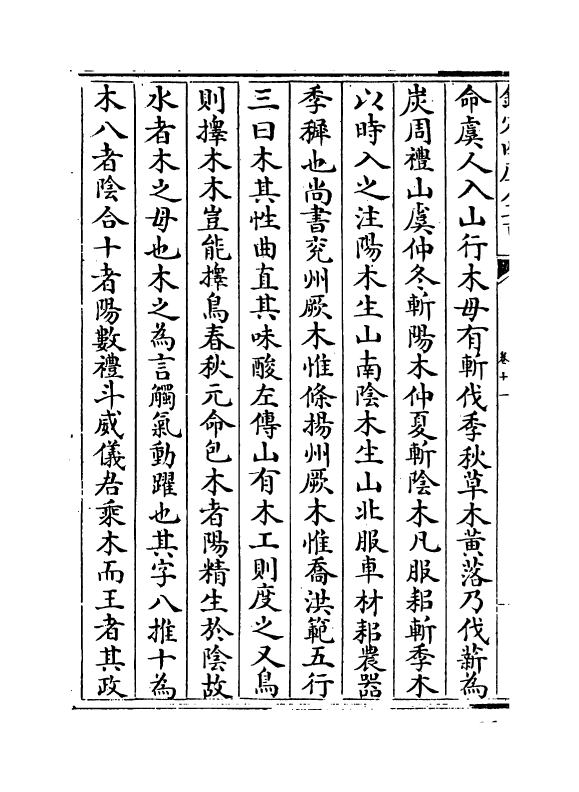 命虞人入山行木毋有斬伐季秋草木黃落乃伐薪為
炭周禮山虞仲冬斬陽木仲夏斬陰木凡服耜斬季木
以時入之注陽木生山南陰木生山北服車材耜農器
季穉也尚書兖州厥木惟條揚州厥木惟喬洪範五行
三曰木其性曲直其味酸左傳山有木工則度之又鳥
則擇木木豈能擇鳥春秋元命包木者陽精生於陰故
水者木之母也木之為言觸氣動躍也其字八推十為
木八者陰合十者陽數禮斗威儀君乘木而王者其政
卷十一